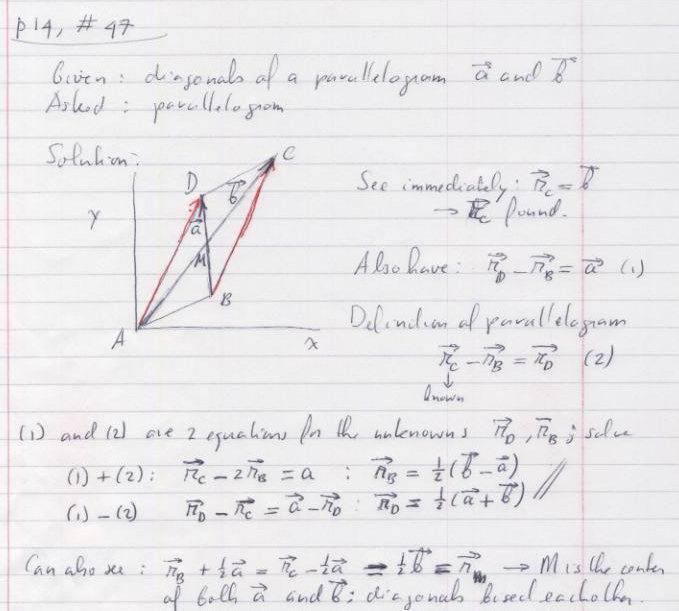 p14, # 47
Given: diagonals of a parallelogram a⃗ and b⃗
Asked: parallelogram
Solution:
C
D
b⃗
a⃗
y
M
B
A
x
See immediately: r⃗_C = b⃗
→ r⃗_C found.
Also have: r⃗_D - r⃗_B = a⃗ (1)
Definition of parallelogram
r⃗_C - r⃗_B = r⃗_D (2)
↓
known
(1) and (2) are 2 equations for the unknowns r⃗_D, r⃗_B; solve
(1) + (2): r⃗_C - 2r⃗_B = a : r⃗_B = ½(b⃗ - a⃗)
(1) - (2) r⃗_D - r⃗_C = a⃗ - r⃗_D : r⃗_D = ½(a⃗ + b⃗) //
Can also see: r⃗_B + ½a⃗ = r⃗_C - ½a⃗ = ½b⃗ = r⃗_M → M is the center
of both a⃗ and b⃗: diagonals bisect each other.